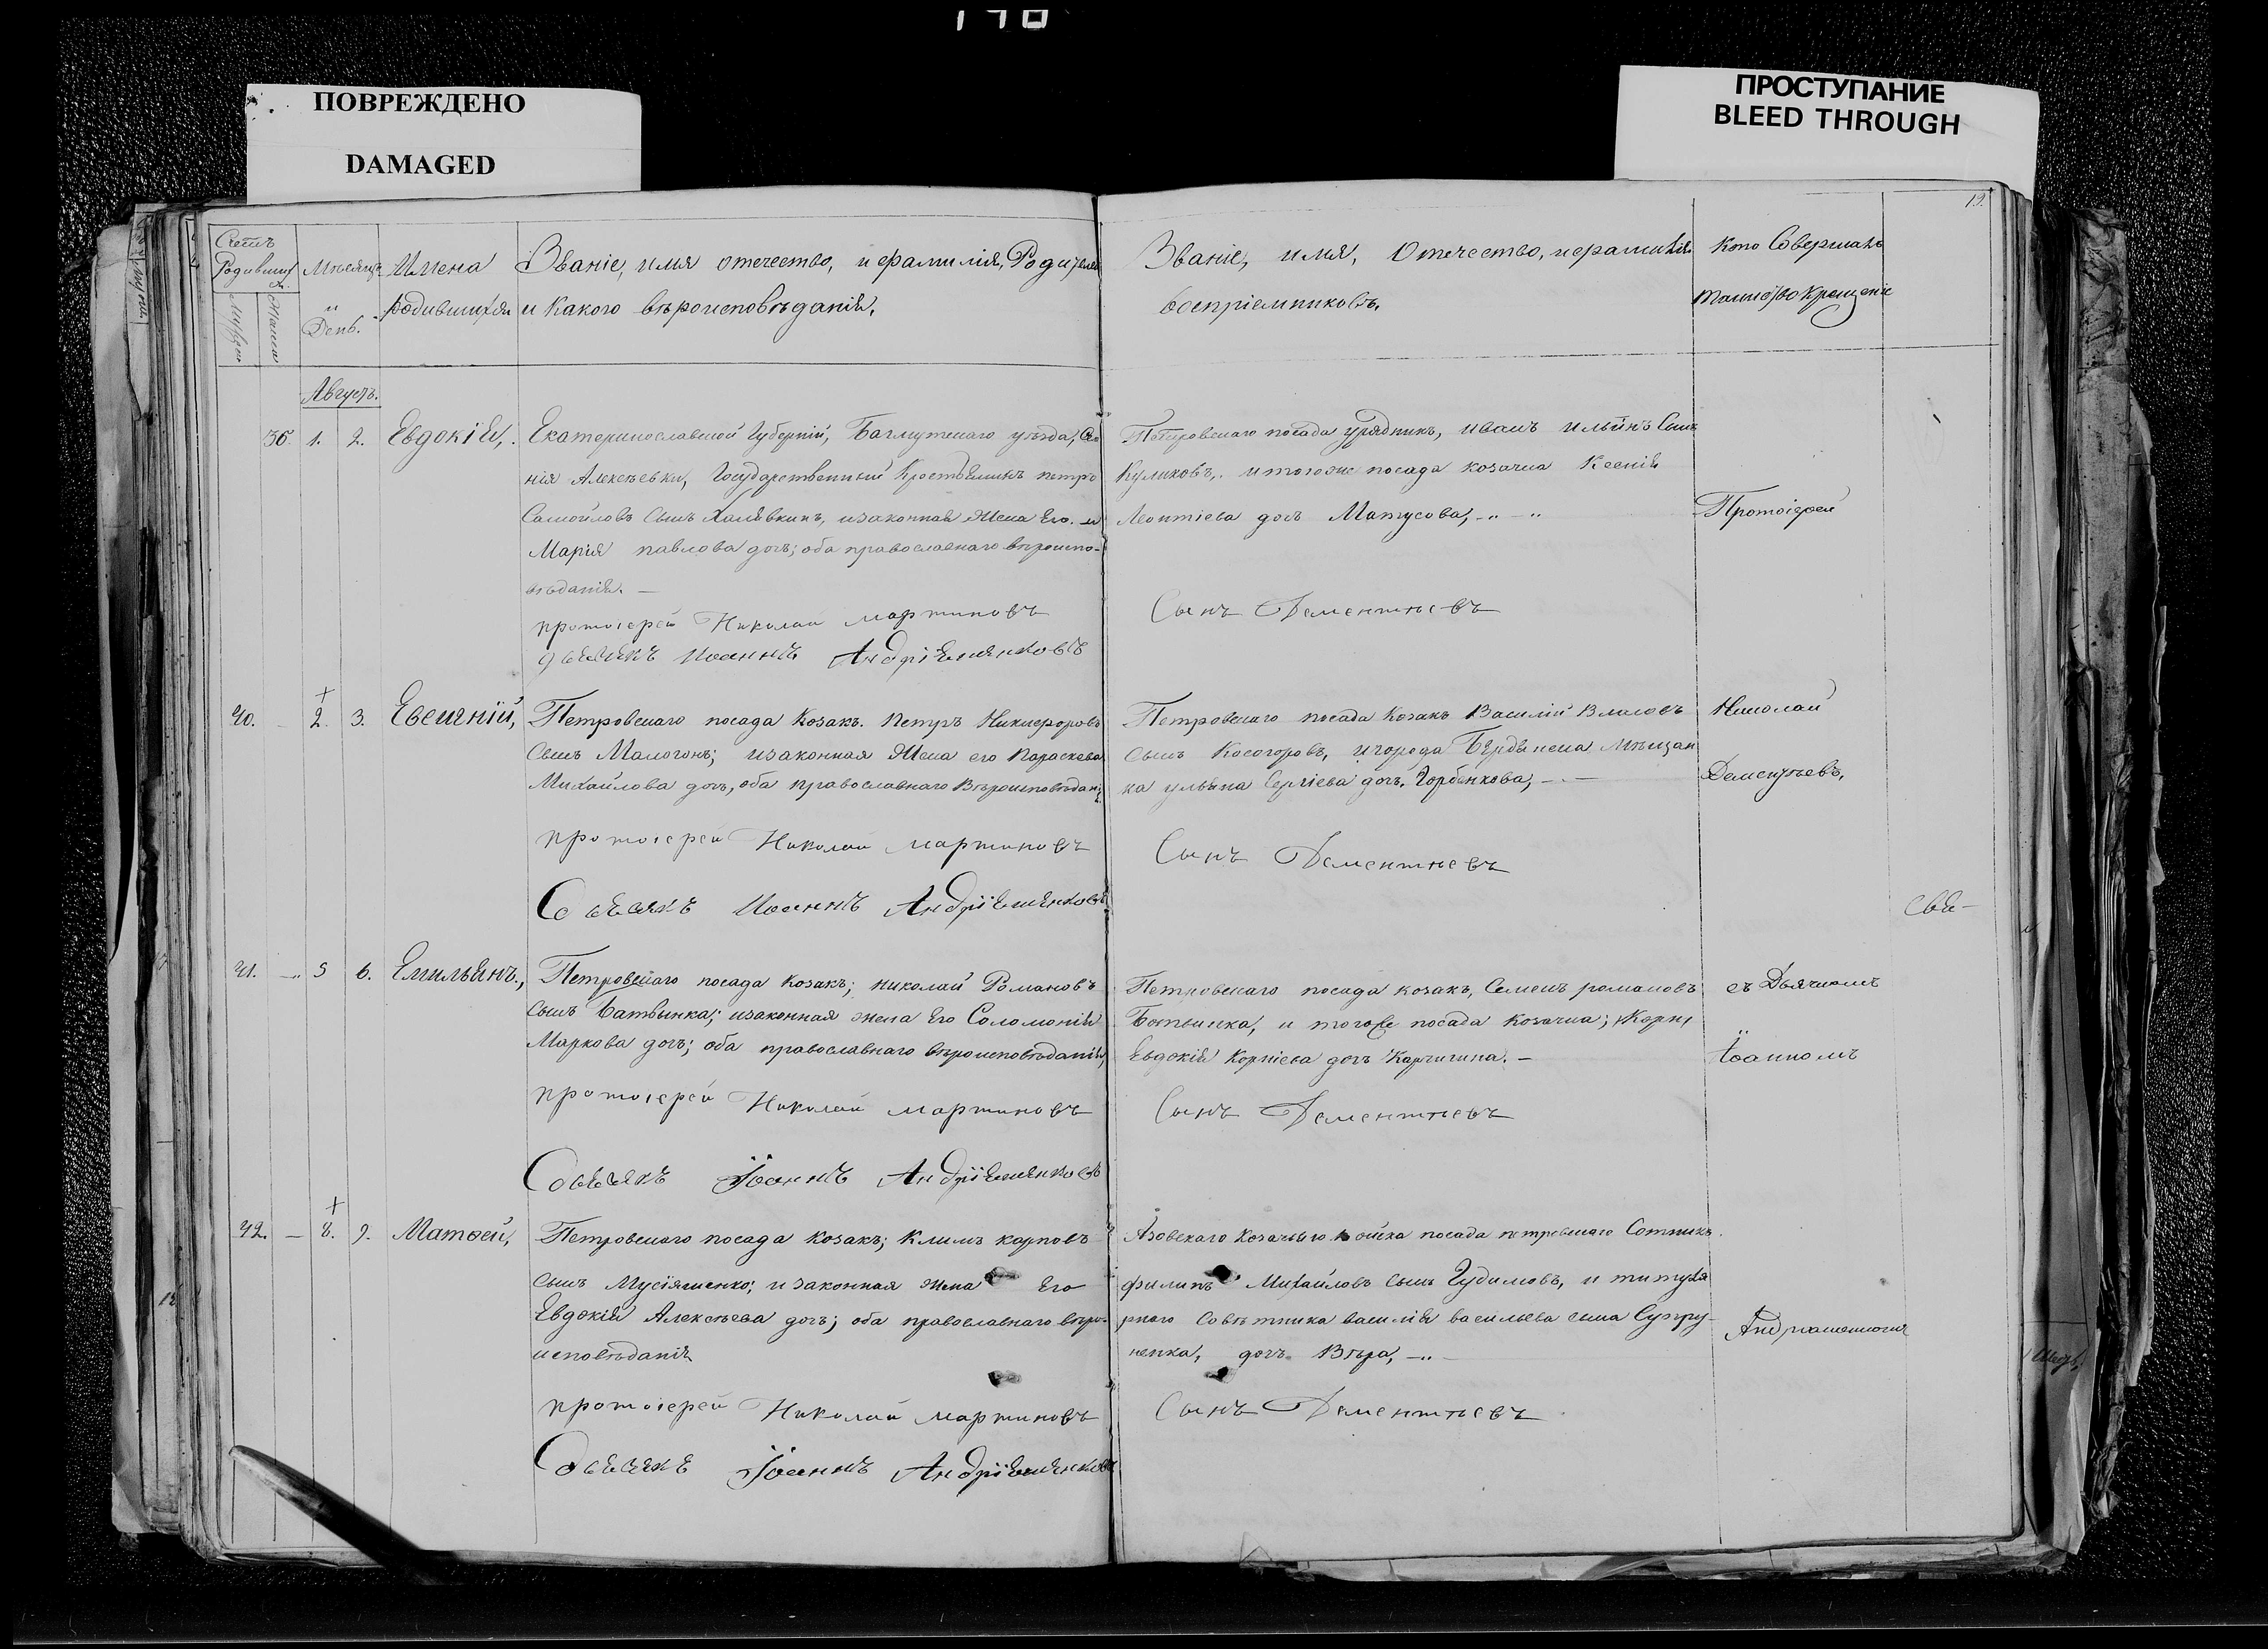 ПОВРЕЖДЕНО
DAMAGED
ПРОСТУПАНИЕ
BLEED THROUGH
19.
Счетъ
Родивших
Мѣсяцъ
Имена
Званіе, имя отечество, и фамилія, Родителей
День.
родившихся
и какого вѣроисповѣданія.
Званіе, имя, Отечество, и фамилія
воспріемниковъ.
Кто Совершалъ
таинство крещенія
Августъ.
36. 1. 2. Евдокія,
Екатеринославской Губерніи, Бахмутскаго уѣзда, Сѣло
нія Алексѣевки, Государственный Крестьянинъ петръ
Самойловъ сынъ Халявкинъ, и законная Жена Его
Марія павлова дочь; оба православнаго вѣроиспо-
вѣданія. —
протоіерей Николай мартиновъ
дьячекъ Иоаннъ Андріяшенковъ
Петровскаго посада урядникъ, иванъ ильинъ Сынъ
Куликовъ, и тогоже посада козачка Ксенія
Леонтіева дочь Матусова,
Протоіерей
Сынъ Дементьевъ
40. 2. 3. Евсигній,
Петровскаго посада Козакъ. петръ Никифоровъ
сынъ Малогонъ; и законная Жена его параскева
Михайлова дочь, оба православнаго Вѣроисповѣдані
протоіерей Николай мартиновъ
Иоаннъ Андріяшенковъ
Петровскаго посада Козакъ Василій Власовъ
сынъ Косогоровъ, и города Бердянска Мѣщан
ка ульяна Сергіева дочь. Горбенкова,
Николай
Дементьевъ,
Сынъ Дементьевъ
Свя-
41. 5 6. Емильянъ.,
Петровскаго посада Козакъ; николай Романовъ
сынъ Батвинка; и законная жена Его Соломонія
Маркова дочь; оба православнаго вѣроисповѣданія,
протоіерей Николай мартиновъ
Іоаннъ Андріяшенковъ
Петровскаго посада козакъ, Семенъ романовъ
Ботвинка, и тогоже посада козачка;
Евдокія Корніева дочь Карчигина. —
съ Дьячкомъ
Іоанномъ
Сынъ Дементьевъ
42. — 8. 9. Матѳей,
Петровскаго посада козакъ; Климъ карповъ
сынъ Мусіяшенко; и законная жена Его
Евдокія Алексѣева дочь; оба православнаго вѣро-
исповѣданія
протоіерей Николай мартиновъ
Іоаннъ Андріяшенковъ
Азовскаго козачьяго войска посада петровскаго Сотникъ
филипъ Михайловъ сынъ Гудимовъ, и титуля
рнаго Совѣтника василія васильева сына Супру-
ненка, дочь Вѣра,
Андріяшенкомъ
Сынъ Дементьевъ